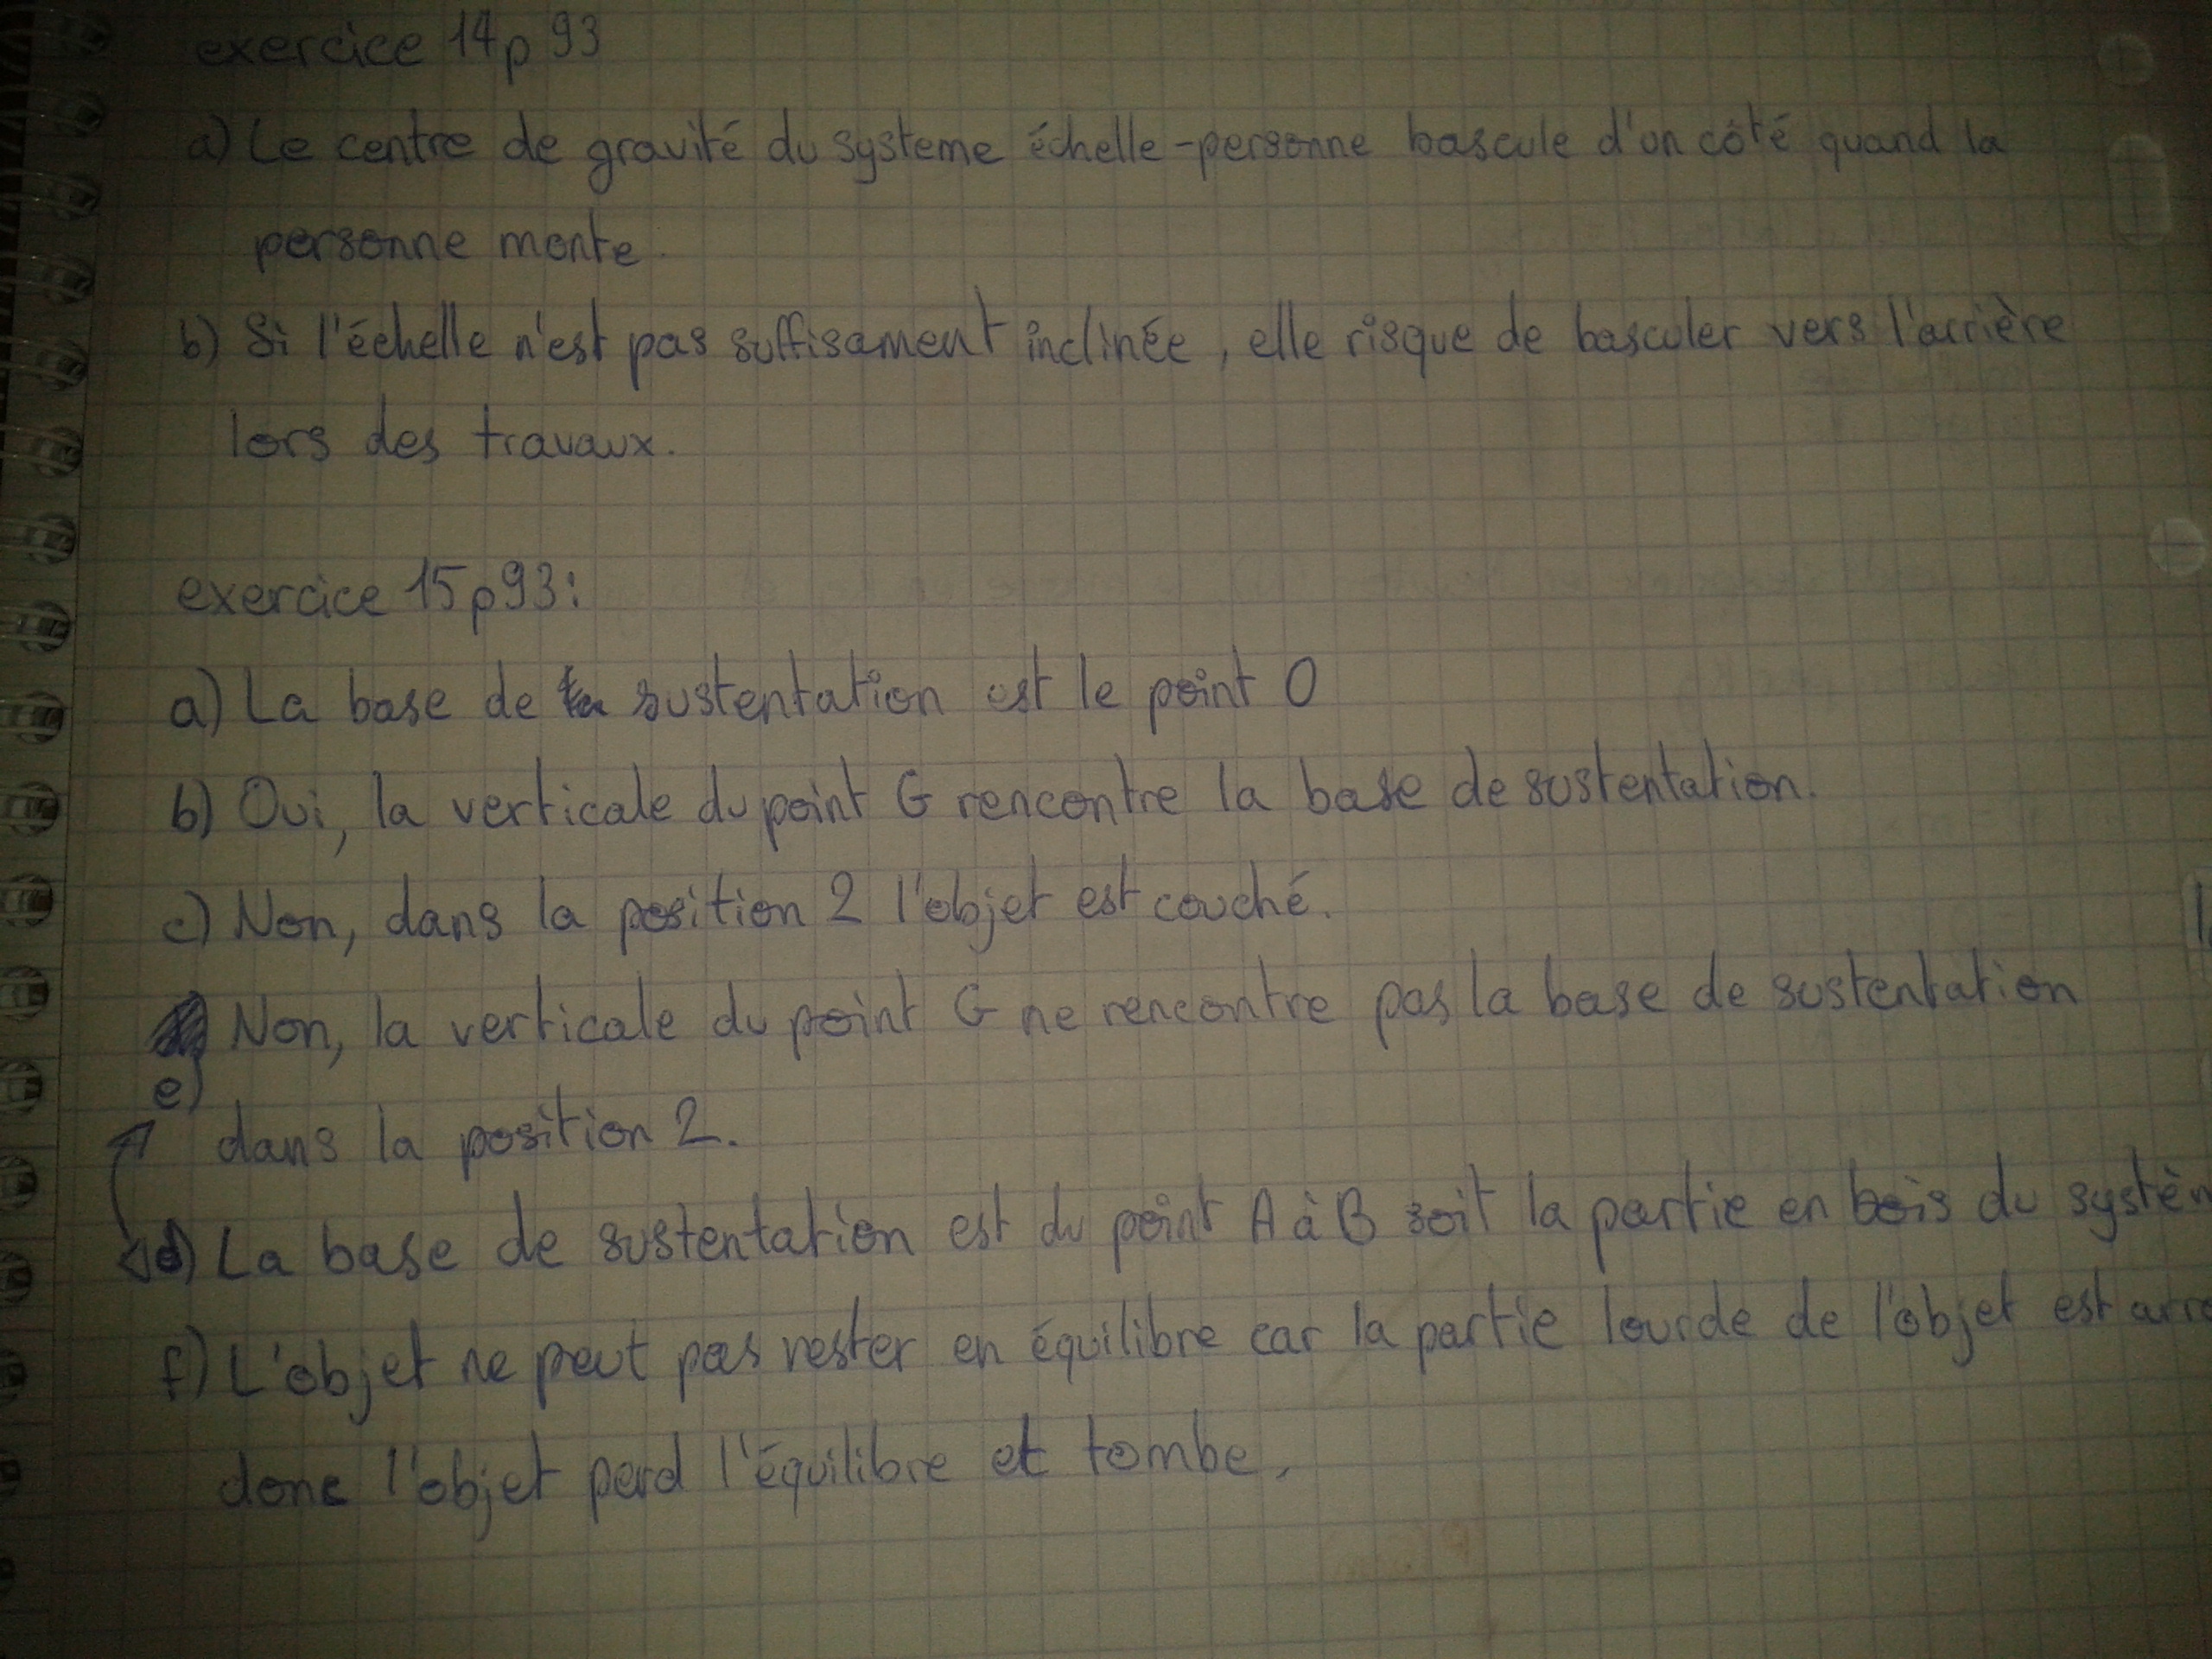 exercice 14p 93
a) Le centre de gravité du systeme échelle-personne bascule d'un côté quand la
personne monte.
b) Si l'échelle n'est pas suffisament inclinée, elle risque de basculer vers l'arrière
lors des travaux.
exercice 15p93:
a) La base de sustentation est le point O
b) Oui, la verticale du point G rencontre la base de sustentation.
c) Non, dans la position 2 l'objet est couché.
Non, la verticale du point G ne rencontre pas la base de sustentation
e)
dans la position 2.
d) La base de sustentation est du point A à B soit la partie en bois du systèm
f) L'objet ne peut pas rester en équilibre car la partie lourde de l'objet est
donc l'objet perd l'équilibre et tombe.